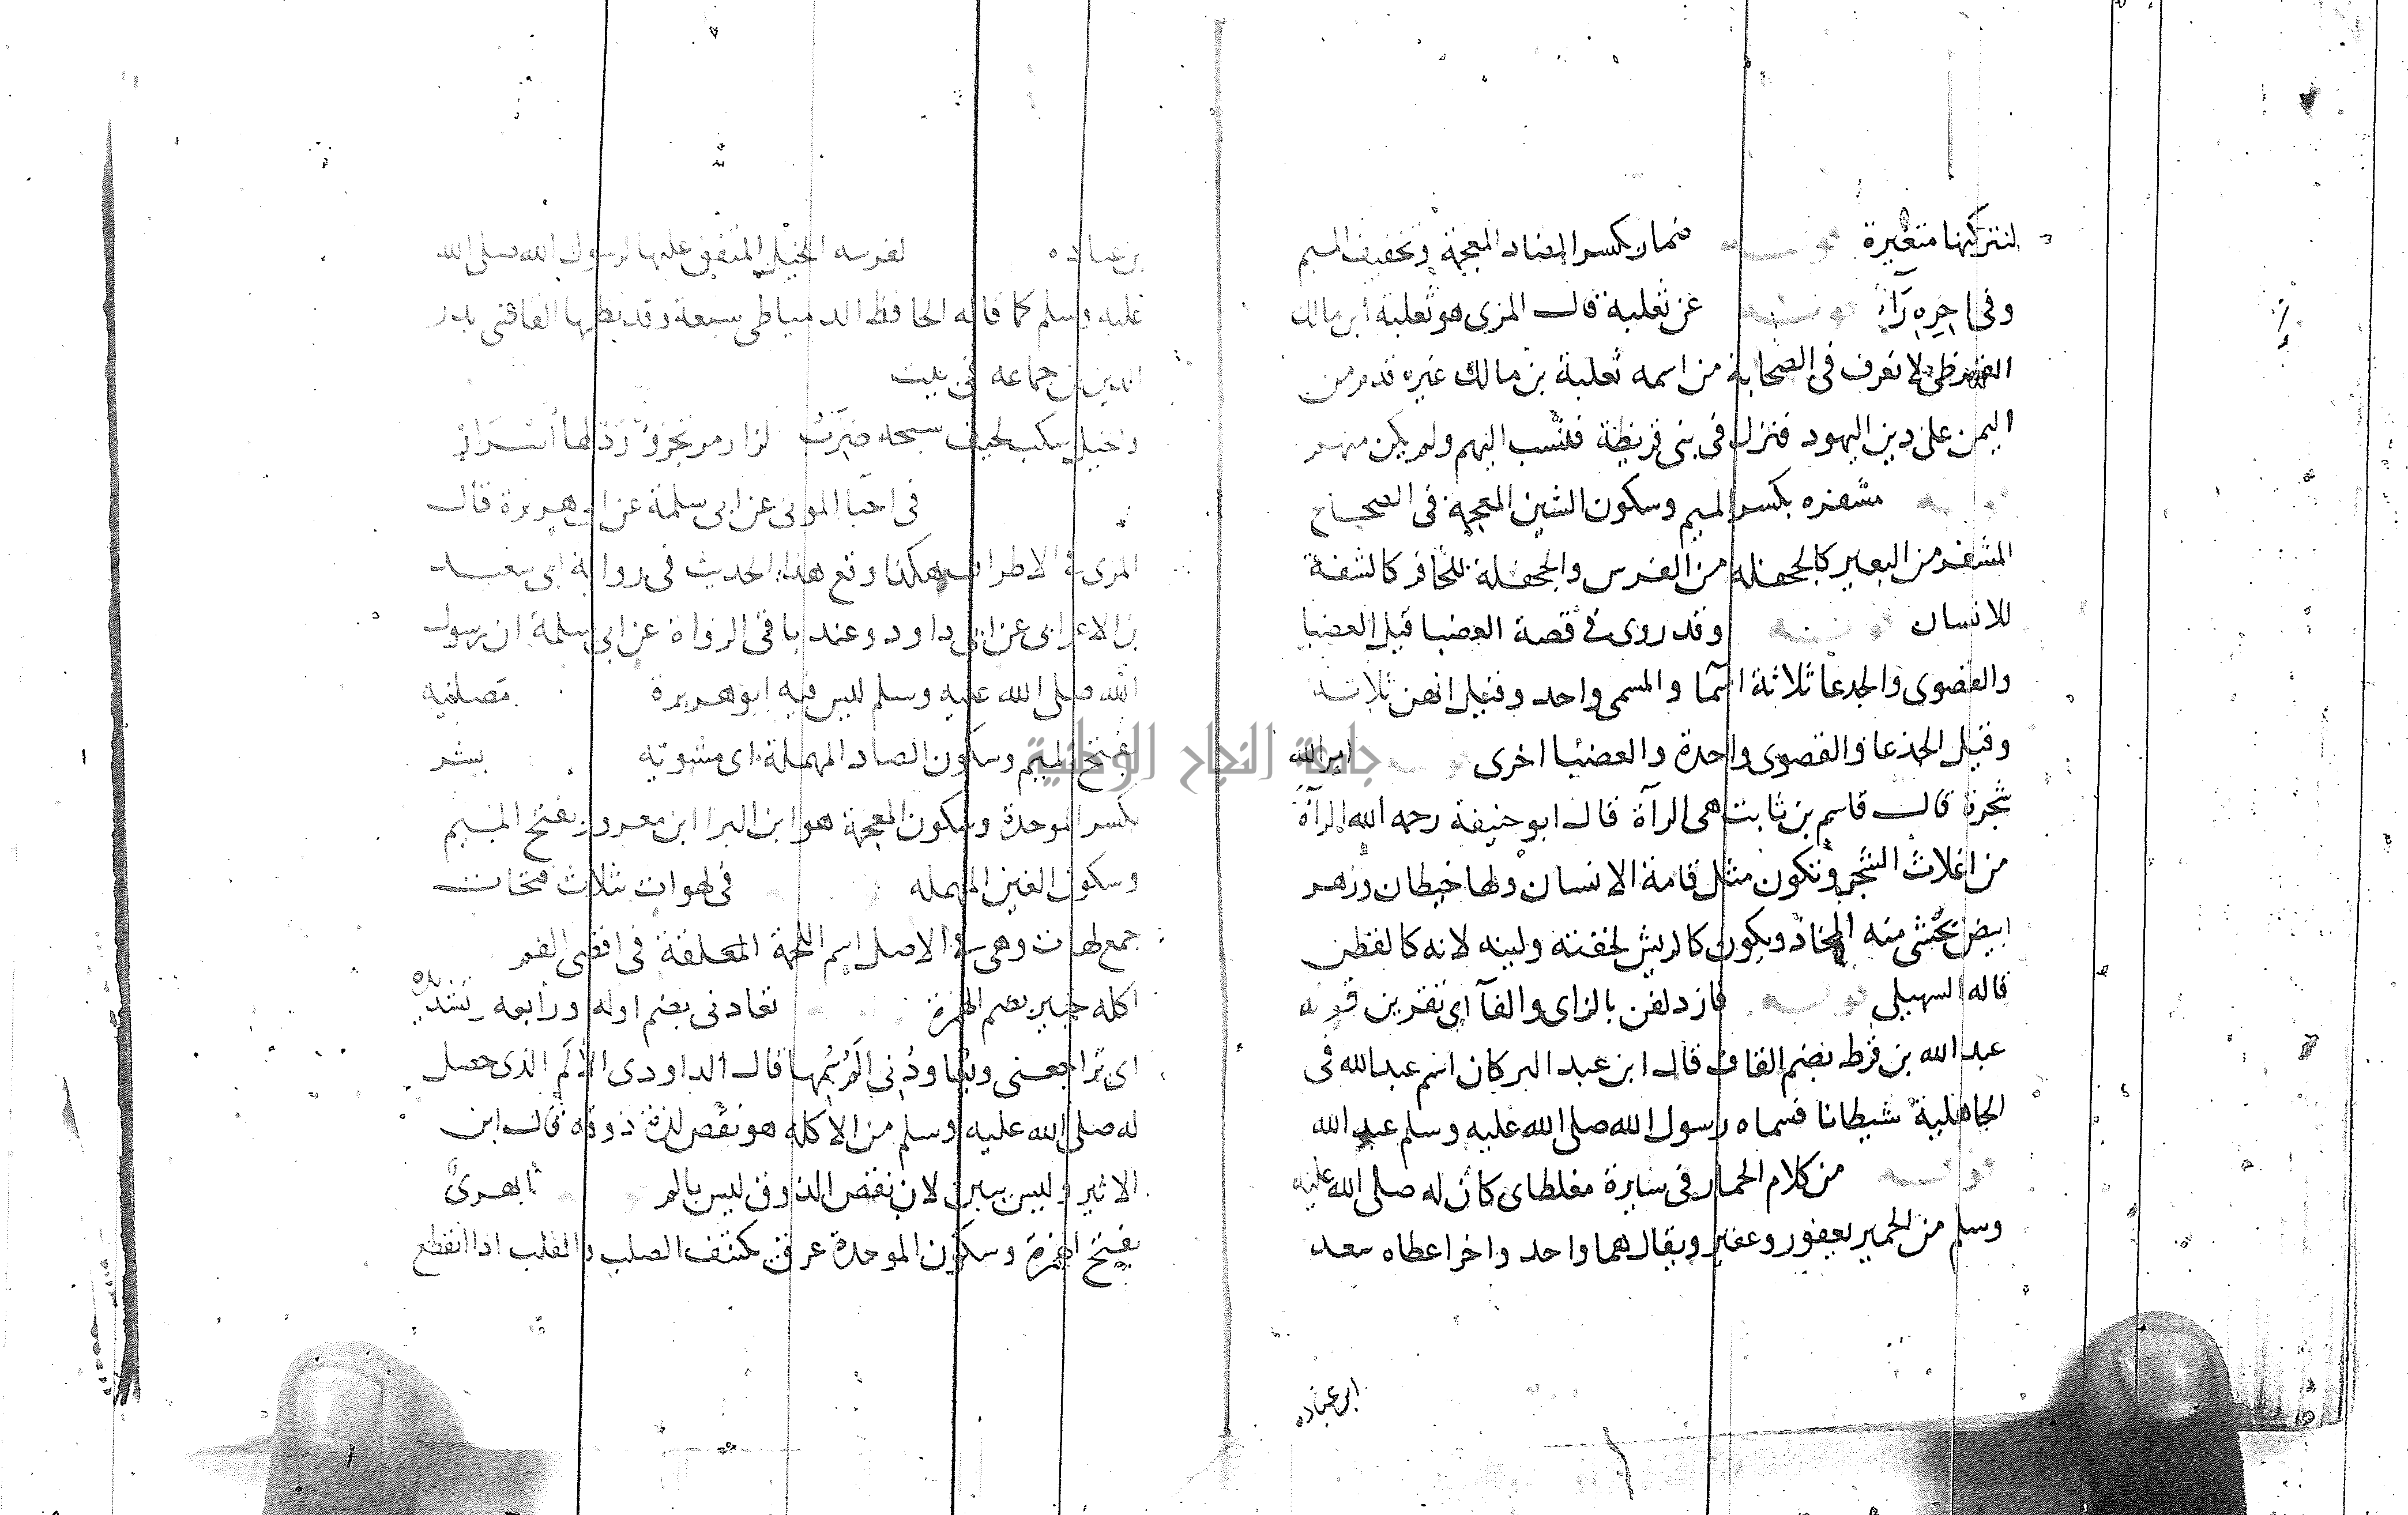 لنتركنها متغيرة قوله ضمار بكسر الضاد المعجمة وتخفيف الميم
وفي اخره رآء قوله عن ثعلبة قال المزى هو ثعلبة ابن مالك
القرظى لا نعرف في الصحابة من اسمه ثعلبة بن مالك غيره قدم من
اليمن على دين اليهود فنزل في بنى قريظة فنسب اليهم ولم يكن منهم
قوله مشفره بكسر الميم وسكون الشين المعجمة في الصحاح
المشفر من البعير كالجحفلة من الفرس والجحفلة للحافر كالشفة
للانسان قوله وقد روى في قصة العضبا قيل العضبا
والقصوى والجدعا ثلاثة اسما والمسمى واحد وقيل انهن ثلاث
وقيل الجذعا والقصوى واحدة والعضبا اخرى امر الله
شجرة قال قاسم بن ثابت هى الرآة قال ابو حنيفة رحمه الله الرآة
من اغلاث الشجر وتكون مثل قامة الانسان ولها خيطان وزهر
ابيض يحشى منه المخاد ويكون كالريش لخفته ولينه لانه كالقطن
قاله السهيلى قوله فازدلفن بالزاى والفآ اى تقربن قوله
عبد الله بن قرط بضم القاف قال ابن عبد البر كان اسم عبد الله في
الجاهلية شيطانا فسماه رسول الله صلى الله عليه وسلم عبد الله
قوله من كلام الحمار في سيرة مغلطاى كان له صلى الله عليه
وسلم من الحمير يعفور وعفير ويقال هما واحد واخر اعطاه سعد
ابن عباده
بن عباده لفرسه الخيل المتفق عليها لرسول الله صلى الله
عليه وسلم كما قاله الحافظ الدمياطى سبعة وقد نظمها القاضى بدر
الدين بن جماعه في بيت
والخيل سكب لحيف سبحه ضرب لزاز مرتجز ورد لها اسرار
في احيا الموتى عن ابى سلمة عن ابى هريرة قال
المزى في الاطراف هكذا وقع هذا الحديث في رواية ابى سعيد
بن الاعرابى عن ابى داود وعند باقى الرواة عن ابى سلمة ان رسول
الله صلى الله عليه وسلم ليس فيه ابو هريرة مصلية
بفتح الميم وسكون الصاد المهملة اى مشوية بشر
بكسر الموحدة وسكون المعجمة هو ابن البرا ابن معرور بفتح الميم
وسكون العين المهمله في لهوات بثلاث فتحات
جمع لهات وهى في الاصل اسم اللحمة المعلقة في اقصى الفم
اكله خيبر بضم الهمزة تعادنى بضم اوله ورابعه وتشديده
اى تراجعنى ويعاودنى الم سمها قال الداودى الالم الذى حصل
له صلى الله عليه وسلم من الاكله هو نقص لذة ذوقه قال ابن
الاثير وليس ببين لان نقص الذوق ليس بالم ابهرى
بفتح الهمزة وسكون الموحدة عرق يكتنف الصلب والقلب اذا انقطع
جامعة النجاح الوطنية